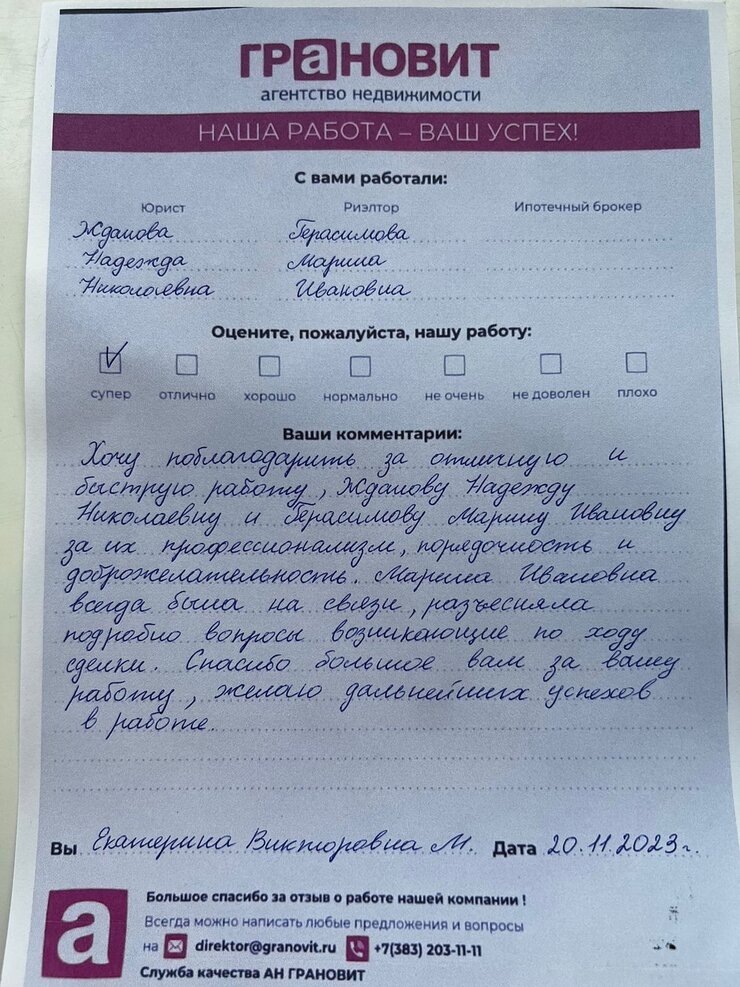 ГРаНОВИТ
агентство недвижимости
НАША РАБОТА – ВАШ УСПЕХ!
С вами работали:
Юрист Риэлтор Ипотечный брокер
Жданова Герасимова
Надежда Марина
Николаевна Ивановна
Оцените, пожалуйста, нашу работу:
супер отлично хорошо нормально не очень не доволен плохо
Ваши комментарии:
Хочу поблагодарить за отличную и
быструю работу, Жданову Надежду
Николаевну и Герасимову Марину Ивановну
за их профессионализм, порядочность и
доброжелательность. Марина Ивановна
всегда была на связи, разъесняла
подробно вопросы возникающие по ходу
сделки. Спасибо большое вам за вашу
работу, желаю дальнейших успехов
в работе.
Вы Екатерина Викторовна М. Дата 20.11.2023г.
а
Большое спасибо за отзыв о работе нашей компании!
Всегда можно написать любые предложения и вопросы
на direktor@granovit.ru +7(383) 203-11-11
Служба качества АН ГРАНОВИТ